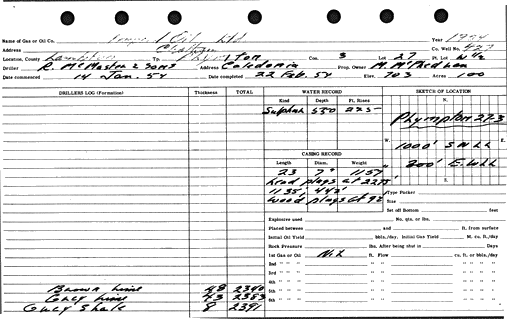 Name of Gas or Oil Co. Imperial Oil Ltd Year 1954
Address Chatham Co. Well No. 427
Location, County Lambton Tp. Plympton Con. 3 Lot 27 Pt. Lot W 1/2
Driller R. McMaster & Sons Address Caledonia Prop. Owner M. McMedhen
Date commenced 14 Jan. 54 Date completed 22 Feb. 54 Elev. 703 Acres 100
DRILLERS LOG (Formation) Thickness TOTAL WATER RECORD SKETCH OF LOCATION
Kind Depth Ft. Rises N.
Sulphur 550 225
Plympton 27-3
CASING RECORD W. 1000' S.N.L.L
Length Diam. Weight
23 7" 1157 200' E.W.LL
Lead plugs at 2275' E.
1135, 442' Type Packer
Wood plugs at 92 Size
Set off Bottom feet
Explosive used No. qts. or lbs.
Placed between and ft. from surface
Initial Oil Yield bbls./day. Initial Gas Yield M. cu. ft./day
Rock Pressure lbs. After being shut in Days
1st Gas or Oil Nil Ft. Flow cu. ft. or bbls./day
2nd " " " " " " "
3rd " " " " " " "
4th " " " " " " "
5th " " " " " " "
Brown Lime 48 2340
Grey Lime 43 2383
6th " " " " " " "
Grey Shale 8 2391